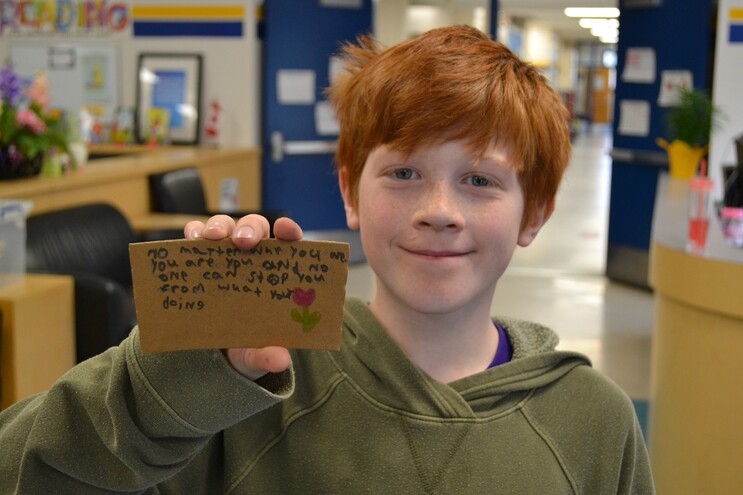 READING
NO matter who you are
you are you and no
one can stop you
from what your
doing